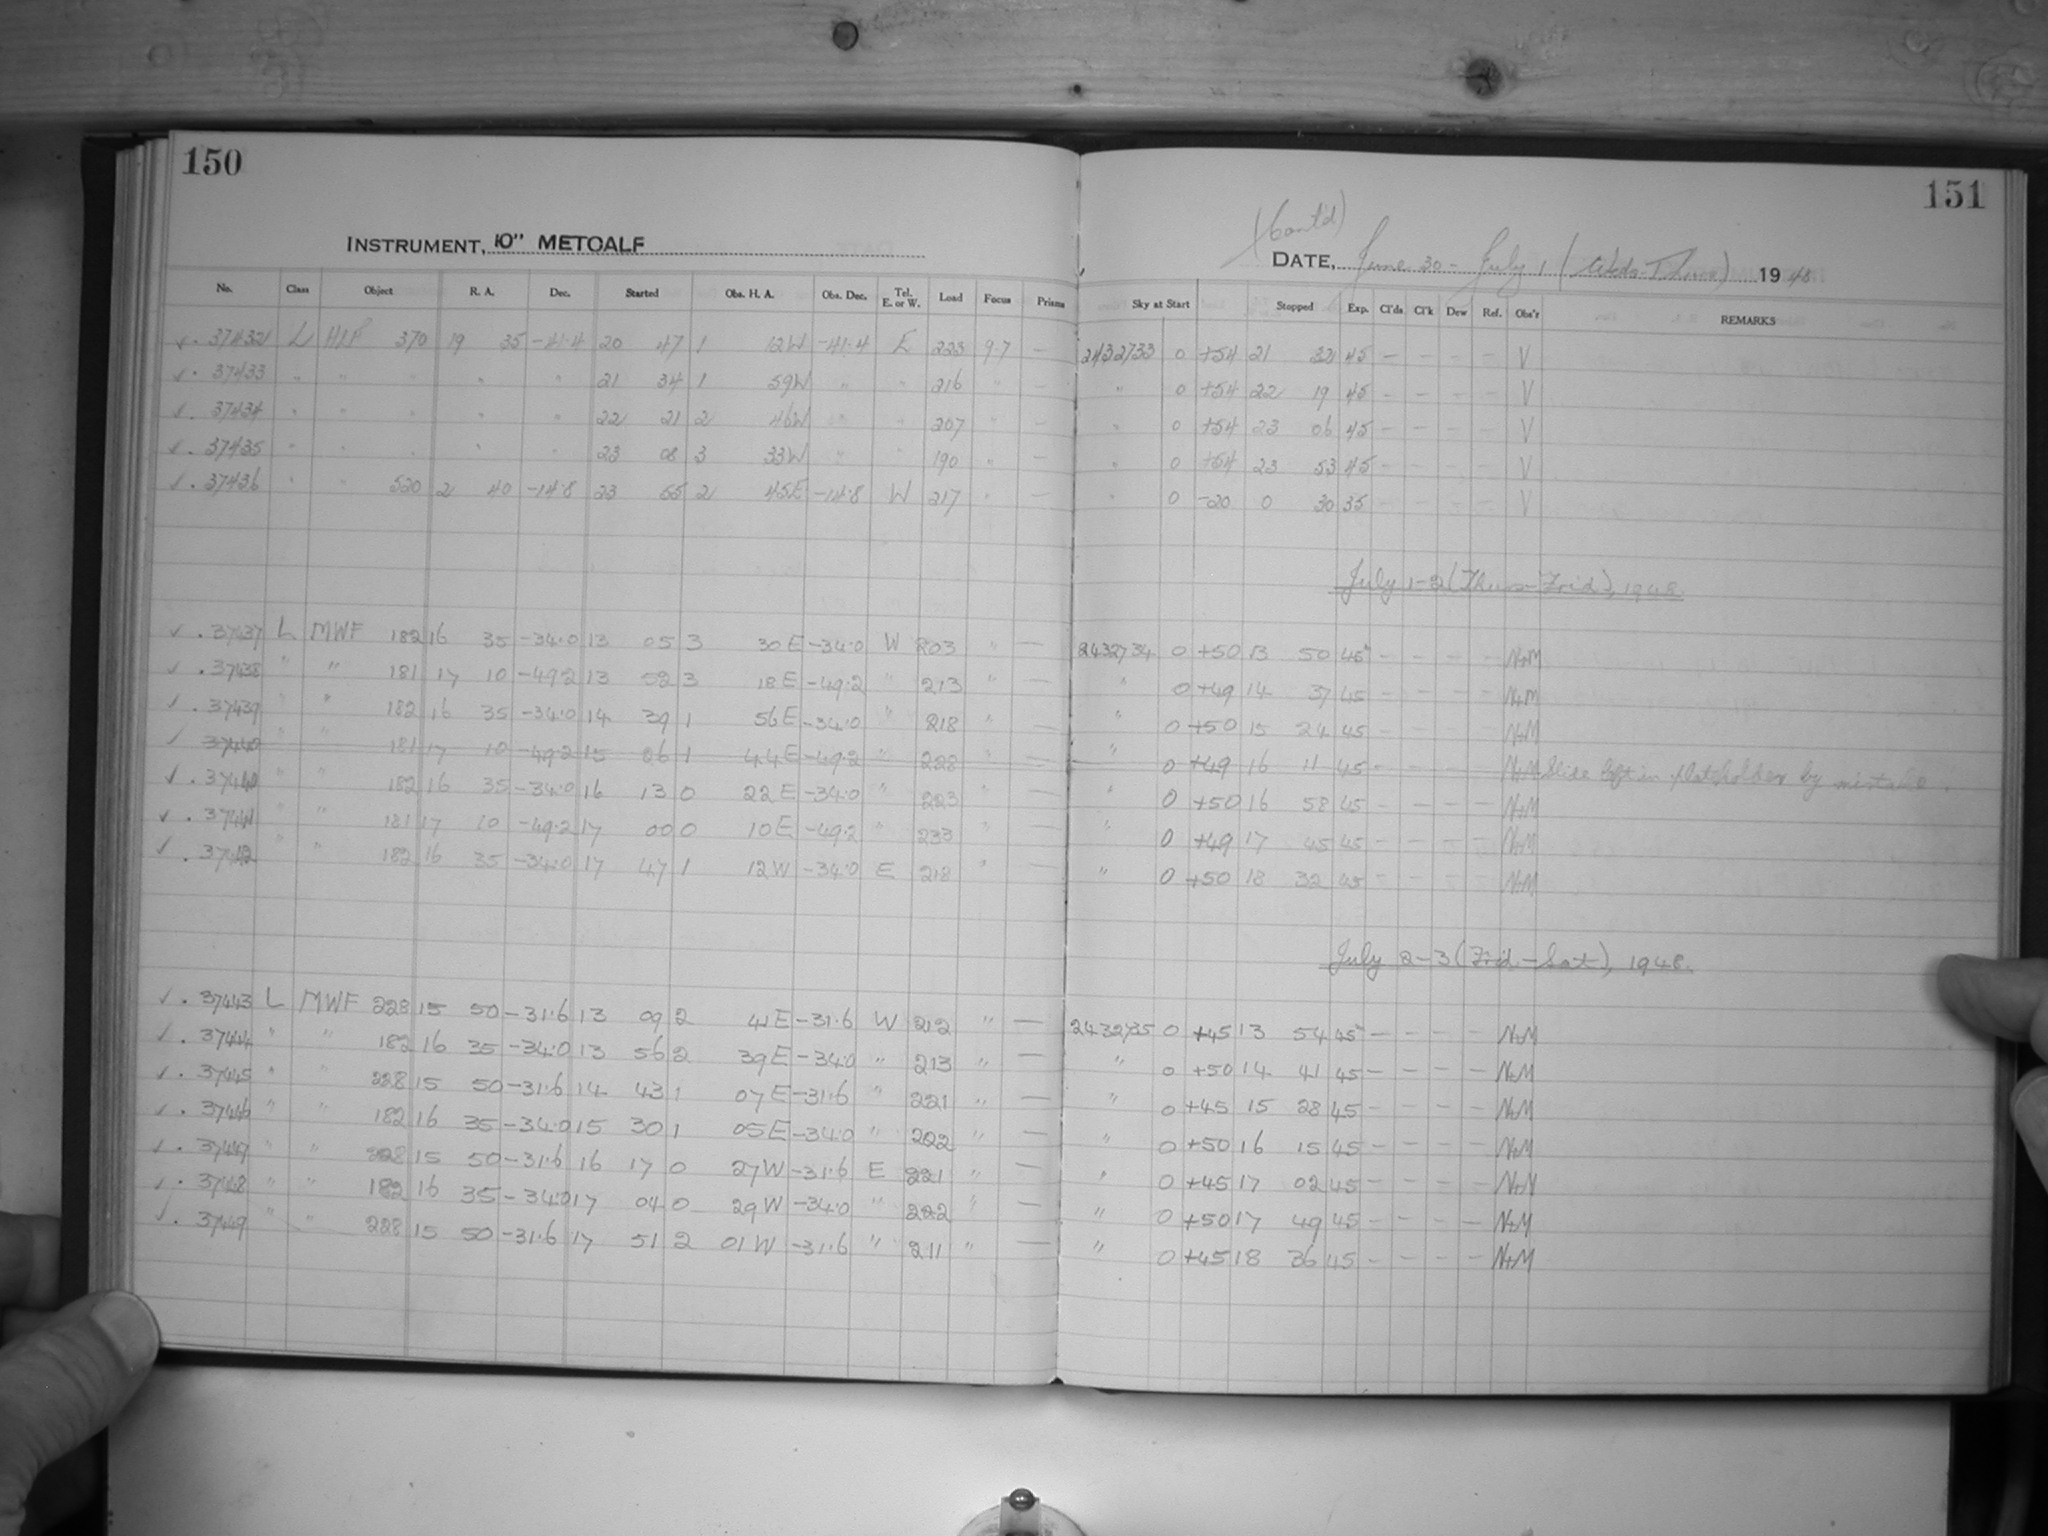 150
151
INSTRUMENT, 10" METCALF
(Cont'd)
DATE, June 30 - July 1 (Weds-Thurs) 1948
No. Class Object R. A. Dec. Started Obs. H. A. Obs. Dec. Tel. E. or W. Load Focus Prisms Sky at Start Stopped Exp. Cl'ds Cl'k Dew Ref. Obs'r REMARKS
✓ . 37432 L 370 19 35 -41.4 20 47 1 12W -41.4 E 223 9.7 — 2432733 0 +54 21 32 45 — — — — V
✓ . 37433 " " " " 21 34 1 59W " " 216 " — " 0 +54 22 19 45 — — — — V
✓ . 37434 " " " " 22 21 2 46W " " 207 " — " 0 +54 23 06 45 — — — — V
✓ . 37435 " " " " 23 08 3 33W " " 190 " — " 0 +54 23 53 45 — — — — V
✓ . 37436 " " 520 2 40 -14.8 23 55 2 45E -14.8 W 217 " — " 0 -20 0 30 35 — — — — V
July 1-2 (Thurs-Frid), 1948.
✓ . 37437 L MWF 182 16 35 -34.0 13 05 3 30E -34.0 W 203 " — 2432734 0 +50 13 50 45 — — — — N+M
✓ . 37438 " " 181 17 10 -49.2 13 52 3 18E -49.2 " 213 " — " 0 +49 14 37 45 — — — — N+M
✓ . 37439 " " 182 16 35 -34.0 14 39 1 56E -34.0 " 218 " — " 0 +50 15 24 45 — — — — N+M
✓ 37440 " " 181 17 10 -49.2 15 26 1 44E -49.2 " 228 " — " 0 +49 16 11 45 — — — — N+M Slide left in plateholder by mistake.
✓ . 37440 " " 182 16 35 -34.0 16 13 0 22E -34.0 " 223 " — " 0 +50 16 58 45 — — — — N+M
✓ . 37441 " " 181 17 10 -49.2 17 00 0 10E -49.2 " 233 " — " 0 +49 17 45 45 — — — — N+M
✓ . 37442 " " 182 16 35 -34.0 17 47 1 12W -34.0 E 218 " — " 0 +50 18 32 45 — — — — N+M
July 2-3 (Frid-Sat), 1948.
✓ . 37443 L MWF 228 15 50 -31.6 13 09 2 41E -31.6 W 212 " — 2432735 0 +45 13 54 45 — — — — N+M
✓ . 37444 " " 182 16 35 -34.0 13 56 2 39E -34.0 " 213 " — " 0 +50 14 41 45 — — — — N+M
✓ . 37445 " " 228 15 50 -31.6 14 43 1 07E -31.6 " 221 " — " 0 +45 15 28 45 — — — — N+M
✓ . 37446 " " 182 16 35 -34.0 15 30 1 05E -34.0 " 222 " — " 0 +50 16 15 45 — — — — N+M
✓ . 37447 " " 228 15 50 -31.6 16 17 0 27W -31.6 E 221 " — " 0 +45 17 02 45 — — — — N+M
✓ . 37448 " " 182 16 35 -34.0 17 04 0 29W -34.0 " 222 " — " 0 +50 17 49 45 — — — — N+M
✓ . 37449 " " 228 15 50 -31.6 17 51 2 01W -31.6 " 211 " — " 0 +45 18 36 45 — — — — N+M